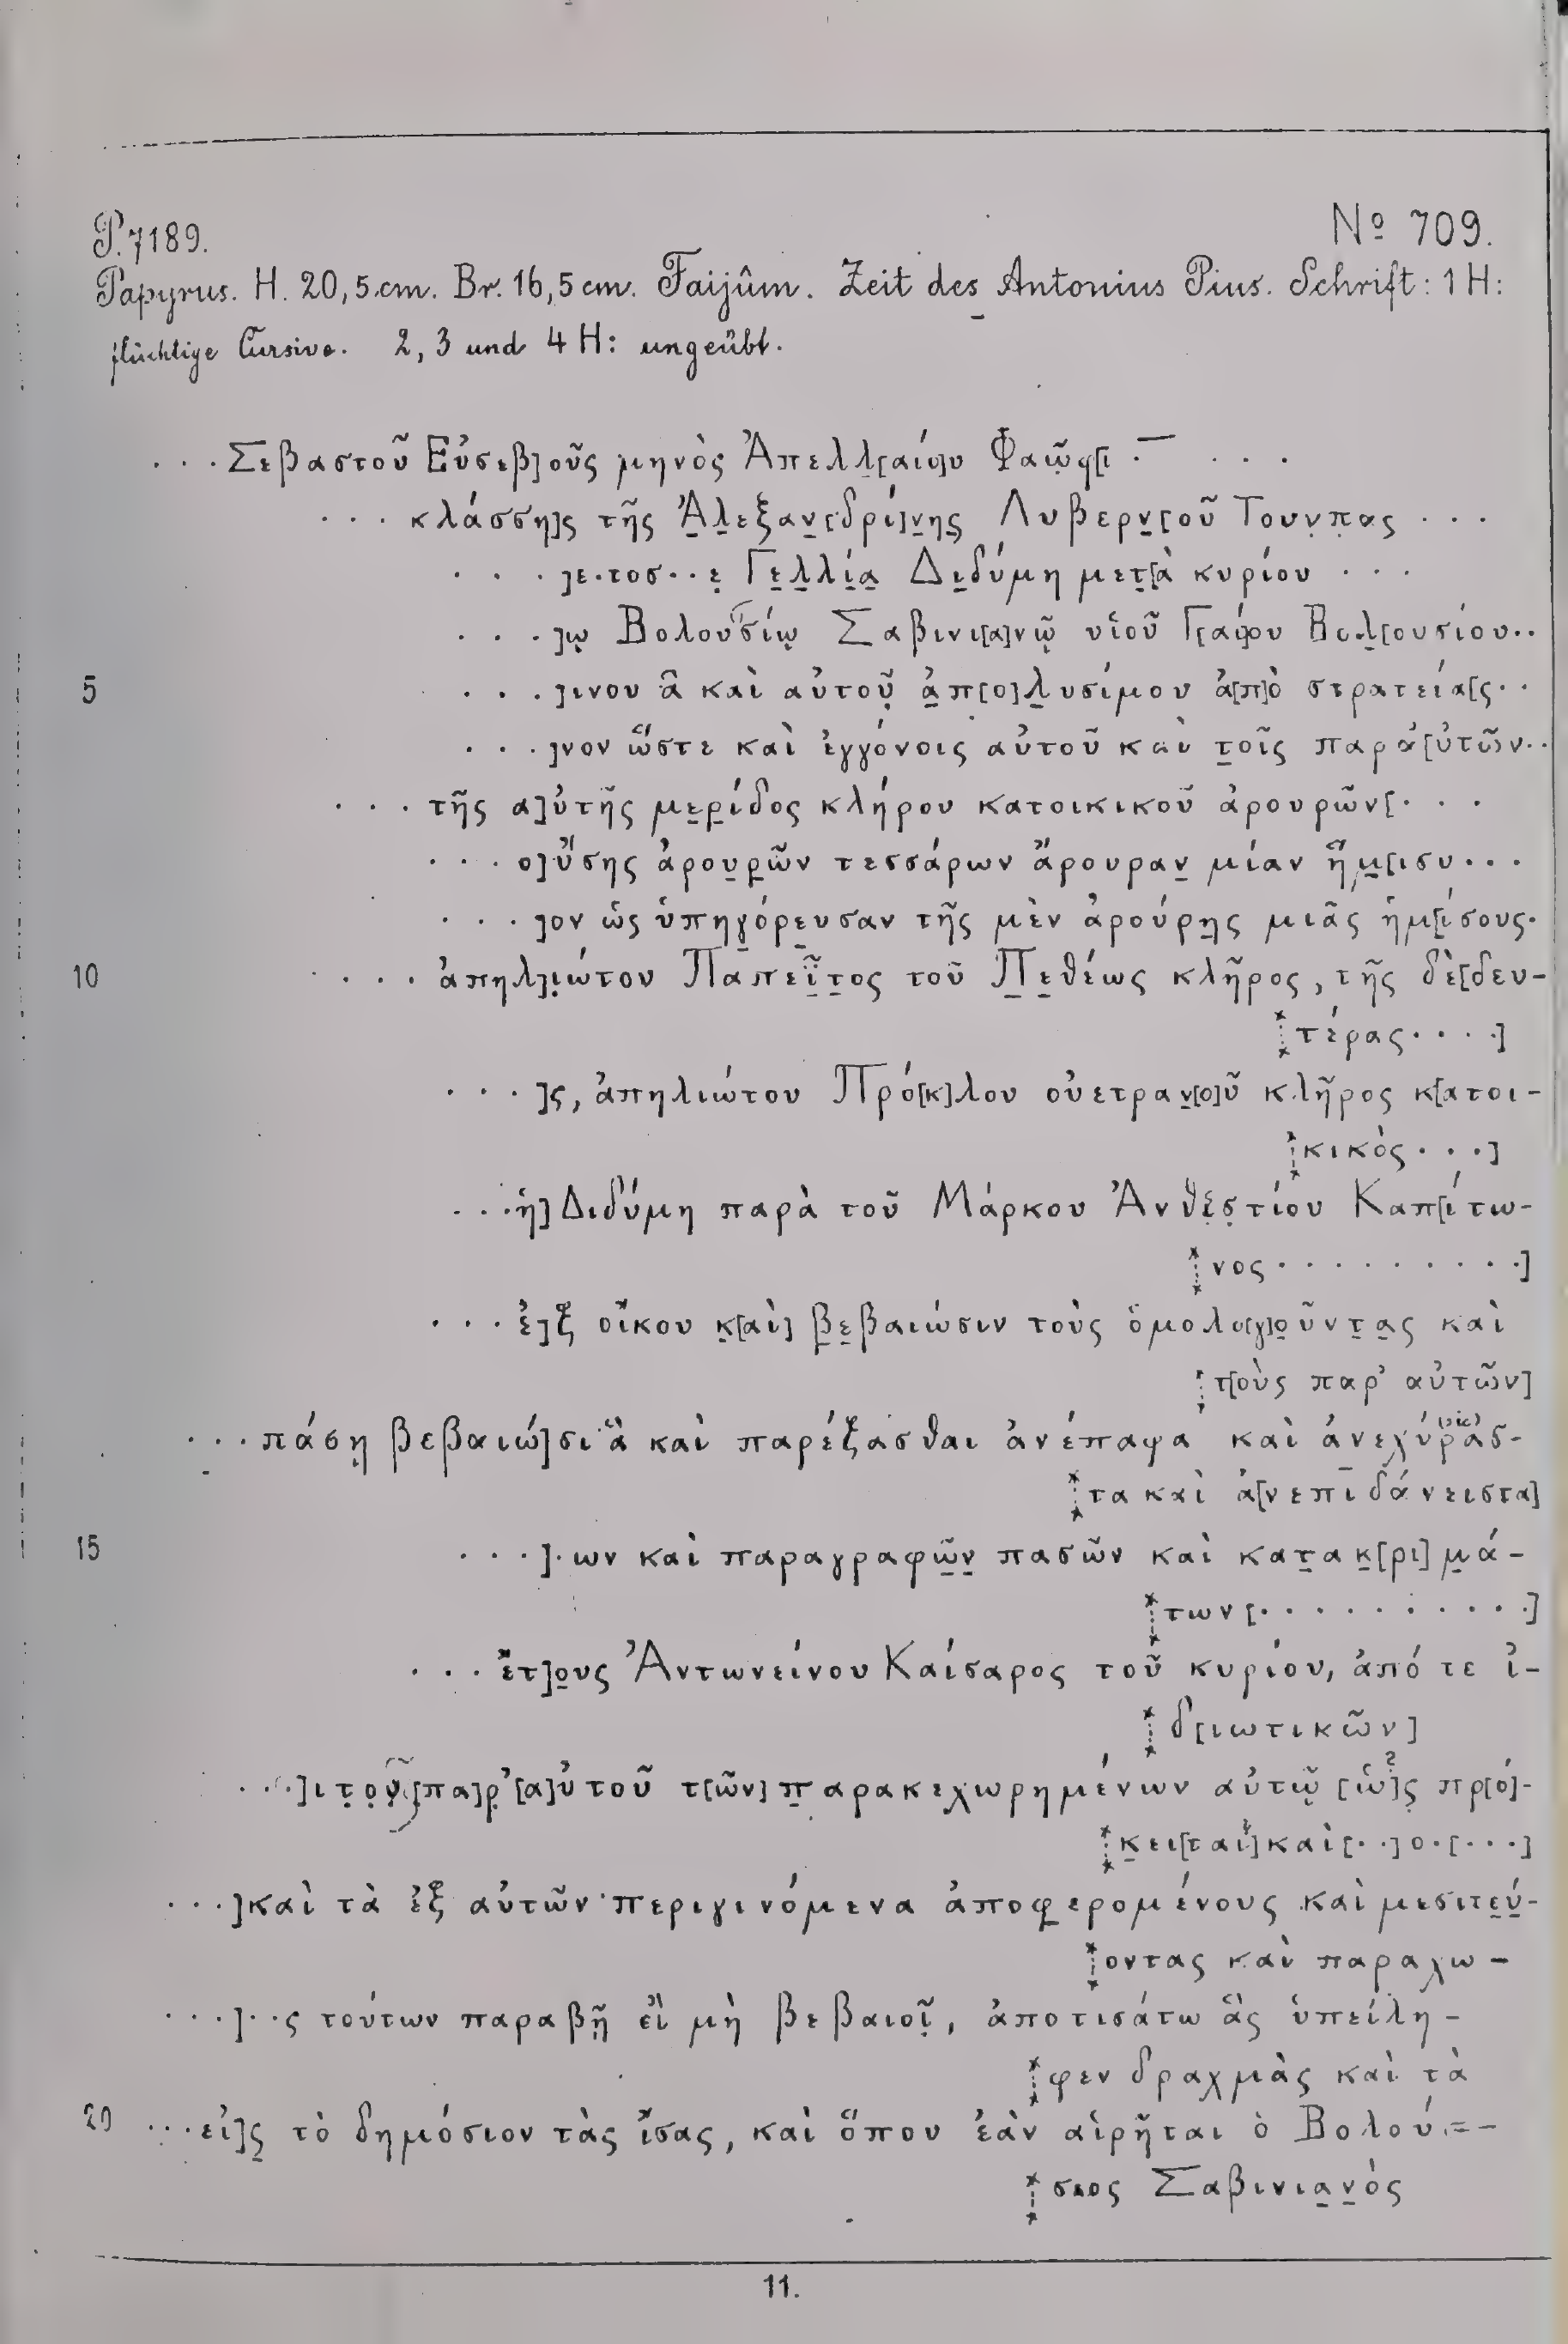 P. 7189.
Nº 709.
Papyrus. H. 20,5.cm. Br. 16,5 cm. Faijûm. Zeit des Antonius Pius. Schrift: 1 H:
flüchtige Cursive. 2, 3 und 4 H: ungeübt.
· · · Σεβαστοῦ Εὐσεβ]οῦς μηνὸς Ἀπελλ̣[αίο]υ Φαῶφ[ι · ‾ · · ·
· · · κλάσση]ς τῆς Ἀ̣λ̣εξαν̣[δρί]ν̣ης̣ Λυβερν̣[οῦ Τουν̣π̣ας · · ·
· · · ]ε·τοσ··ε̣ Γε̣λ̣λί̣α̣ Δι̣δύμη μετ̣[ὰ κυρίου · · ·
· · · ]ῳ Βολουσίῳ Σαβινι[α]νῷ υἱοῦ Γ[αΐ]ου Βολ̣[ουσίου··
5 · · · ]ινου ἃ καὶ αὐτοῦ̣ ἀ̣π[ο]λ̣υσίμου ἀ[π]ὸ στρατεία[ς··
· · · ]νον ὥστε καὶ ἐγγόνοις αὐτοῦ καὶ τ̣οῖς παρ' α[ὐτῶν··
· · · τῆς α]ὐτῆς με̣ρ̣ίδος κλήρου κατοικικοῦ ἀρουρῶν[· · ·
· · · ο]ὔσης ἀρου̣ρ̣ῶν τεσσάρων ἄρουραν̣ μίαν ἥμ̣[ισυ· · ·
· · · ]ον ὡς ὑπηγ̣όρε̣υσαν τῆς μὲν ἀρούρη̣ς μιᾶς ἡμ[ίσους·
10 · · · · ἀπηλ]ι̣ώτον Παπεῖ̣τ̣ος τοῦ Π̣ε̣θέως κλῆρος, τῆς δὲ[δευ-
τέρας· · · ·]
· · · ]ς, ἀπηλιώτου Πρό[κ]λου οὐετραν̣[ο]ῦ κλῆρος κ[ατοι-
κικὸς· · ·]
· · ·ἡ] Διδύμη παρὰ τοῦ Μάρκου Ἀνθε̣σ̣τίου Καπ[ίτω-
νος· · · · · · · · ·]
· · · ἐ]ξ οἴκου κ̣[αὶ] β̣ε̣βαιώσιν τοὺς ὁμολο[γ]ο̣ῦντ̣α̣ς καὶ
τ[οὺς παρ' αὐτῶν]
· · · πάσῃ βεβαιώ]σι ἃ καὶ παρέξασθαι ἀνέπαφα καὶ ἀνεχύρασ-
(sic)
τα καὶ ἀ[νεπιδάνειστα]
15 · · · ]·ων καὶ παραγραφῶ̣ν̣ πασῶν καὶ κατ̣ακ̣[ρι]μ̣ά-
των[· · · · · · · · · ·]
· · · ἔτ]ο̣υς Ἀντωνείνου Καίσαρος τοῦ κυρίου, ἀπό τε ἰ-
δ[ιωτικῶν]
· · · ]ι τ̣ο̣ῦ̣ [πα]ρ̣'[α]ὐτοῦ τ[ῶν] π̣αρακεχωρημένων αὐτῷ [ὡ?]ς̣ πρ[ό]-
κ̣ει[ται] καὶ[··]ο·[···]
· · · ]καὶ τὰ ἐξ αὐτῶν περιγινόμενα ἀποφερομένους καὶ μεσιτε̣ύ̣-
οντας καὶ παραχω-
· · · ]··ς τούτων παραβῇ ἐὶ μὴ βεβαιοῖ̣, ἀποτισάτω ἃς ὑπείλη-
φεν δραχμὰς καὶ τὰ
20 · · · εἰ]ς̣ τὸ δημόσιον τὰς ἴσας, καὶ ὅπου ἐὰν αἱρῆται ὁ Βολού-
σιος Σαβινια̣ν̣ὸς
11.